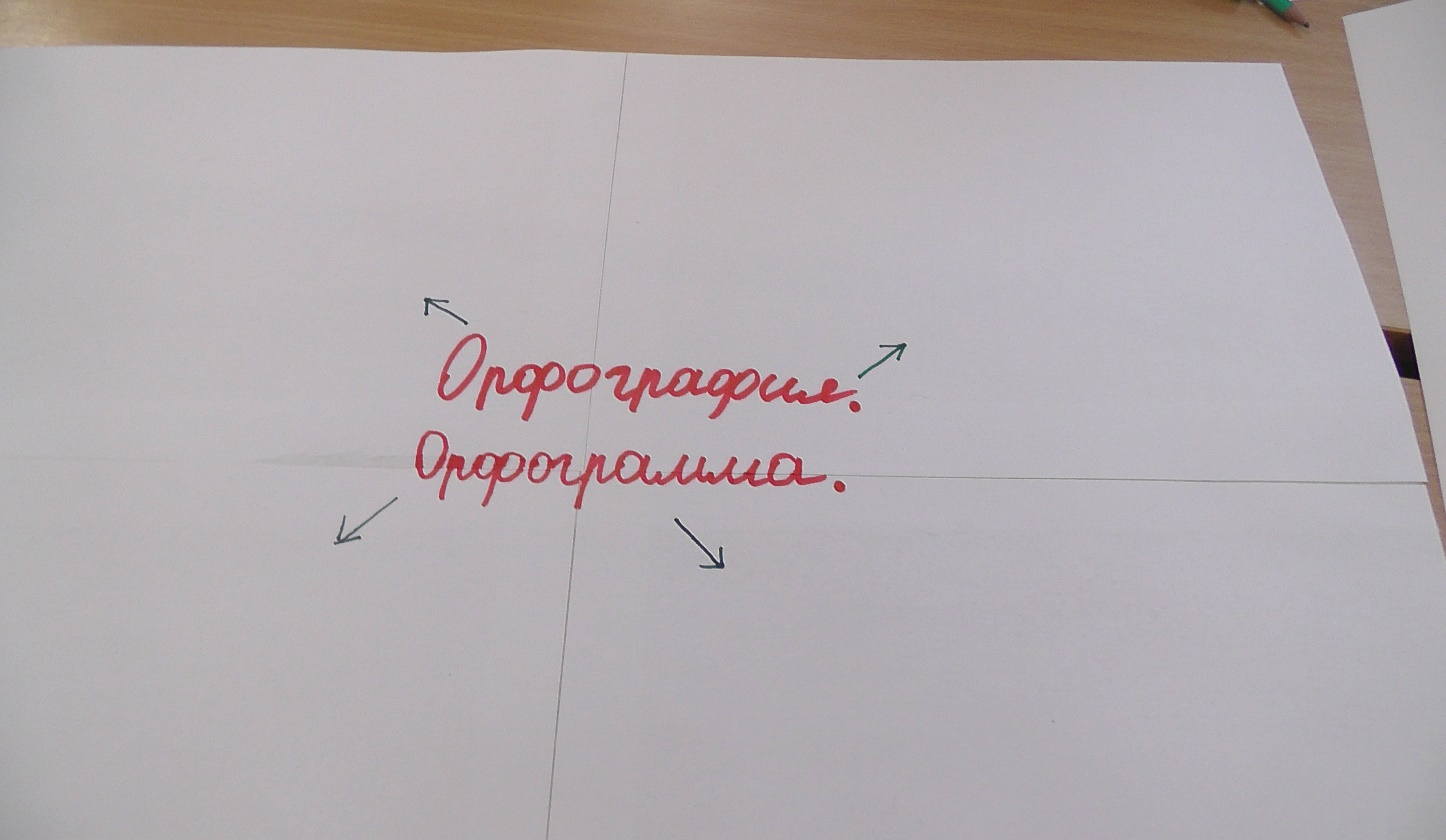 Орфография.
Орфограмма.